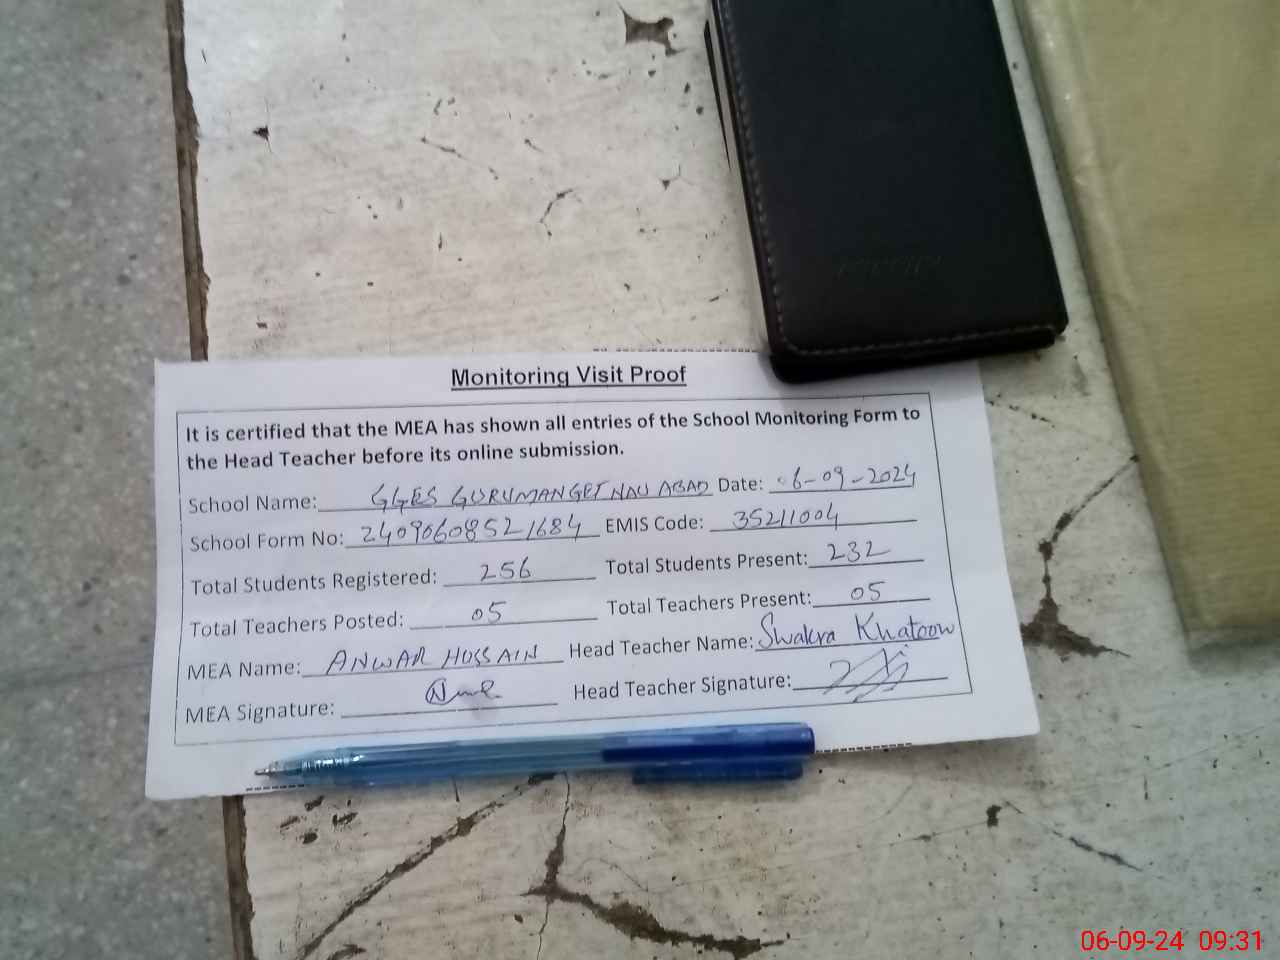 Monitoring Visit Proof
It is certified that the MEA has shown all entries of the School Monitoring Form to
the Head Teacher before its online submission.
School Name: GGES GURUMANGET NAU ABAD Date: 06-09-2024
School Form No: 24090608521684 EMIS Code: 35211004
Total Students Registered: 256 Total Students Present: 232
Total Teachers Posted: 05 Total Teachers Present: 05
MEA Name: ANWAR HUSSAIN Head Teacher Name: Khatoon
MEA Signature: Head Teacher Signature:
06-09-24 09:31